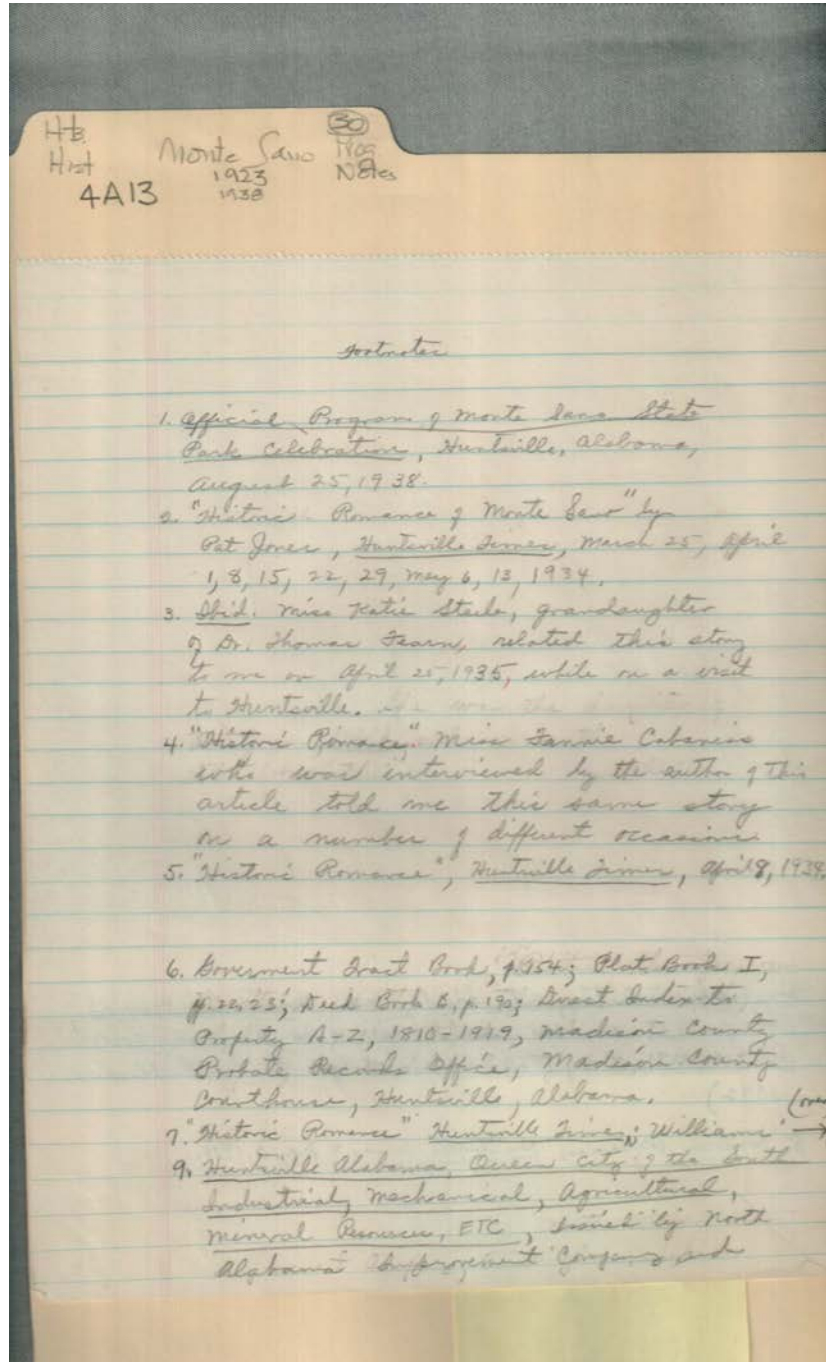 Htb.
Hist
4A13
Monte Sano
1923
1938
30
Prog
Notes
Footnotes
1. Official Program of Monte Sano State
Park Celebration, Huntsville, Alabama,
August 25, 1938.
2. "Historic Romance of Monte Sano" by
Pat Jones, Huntsville Times, March 25, April
1, 8, 15, 22, 29, May 6, 13, 1934.
3. Ibid. Miss Katie Steele, grandaughter
of Dr. Thomas Fearn, related this story
to me on April 25, 1935, while on a visit
to Huntsville.
4. "Historic Romance," Miss Fannie Cabaniss
who was interviewed by the author of this
article told me this same story
on a number of different occasions
5. "Historic Romance", Huntsville Times, April 8, 1934.
6. Government Tract Book, p. 154; Plat Book I,
p. 22, 23; Deed Book B, p. 190; Direct Index to
Property A-Z, 1810-1919, Madison County
Probate Records Office, Madison County
Courthouse, Huntsville, Alabama.
(over
7. "Historic Romance" Huntsville Times; Williams →
9. Huntsville Alabama, Queen City of the South
Industrial, Mechanical, Agricultural,
Mineral Resources, ETC, issued by North
Alabama Improvement Company and